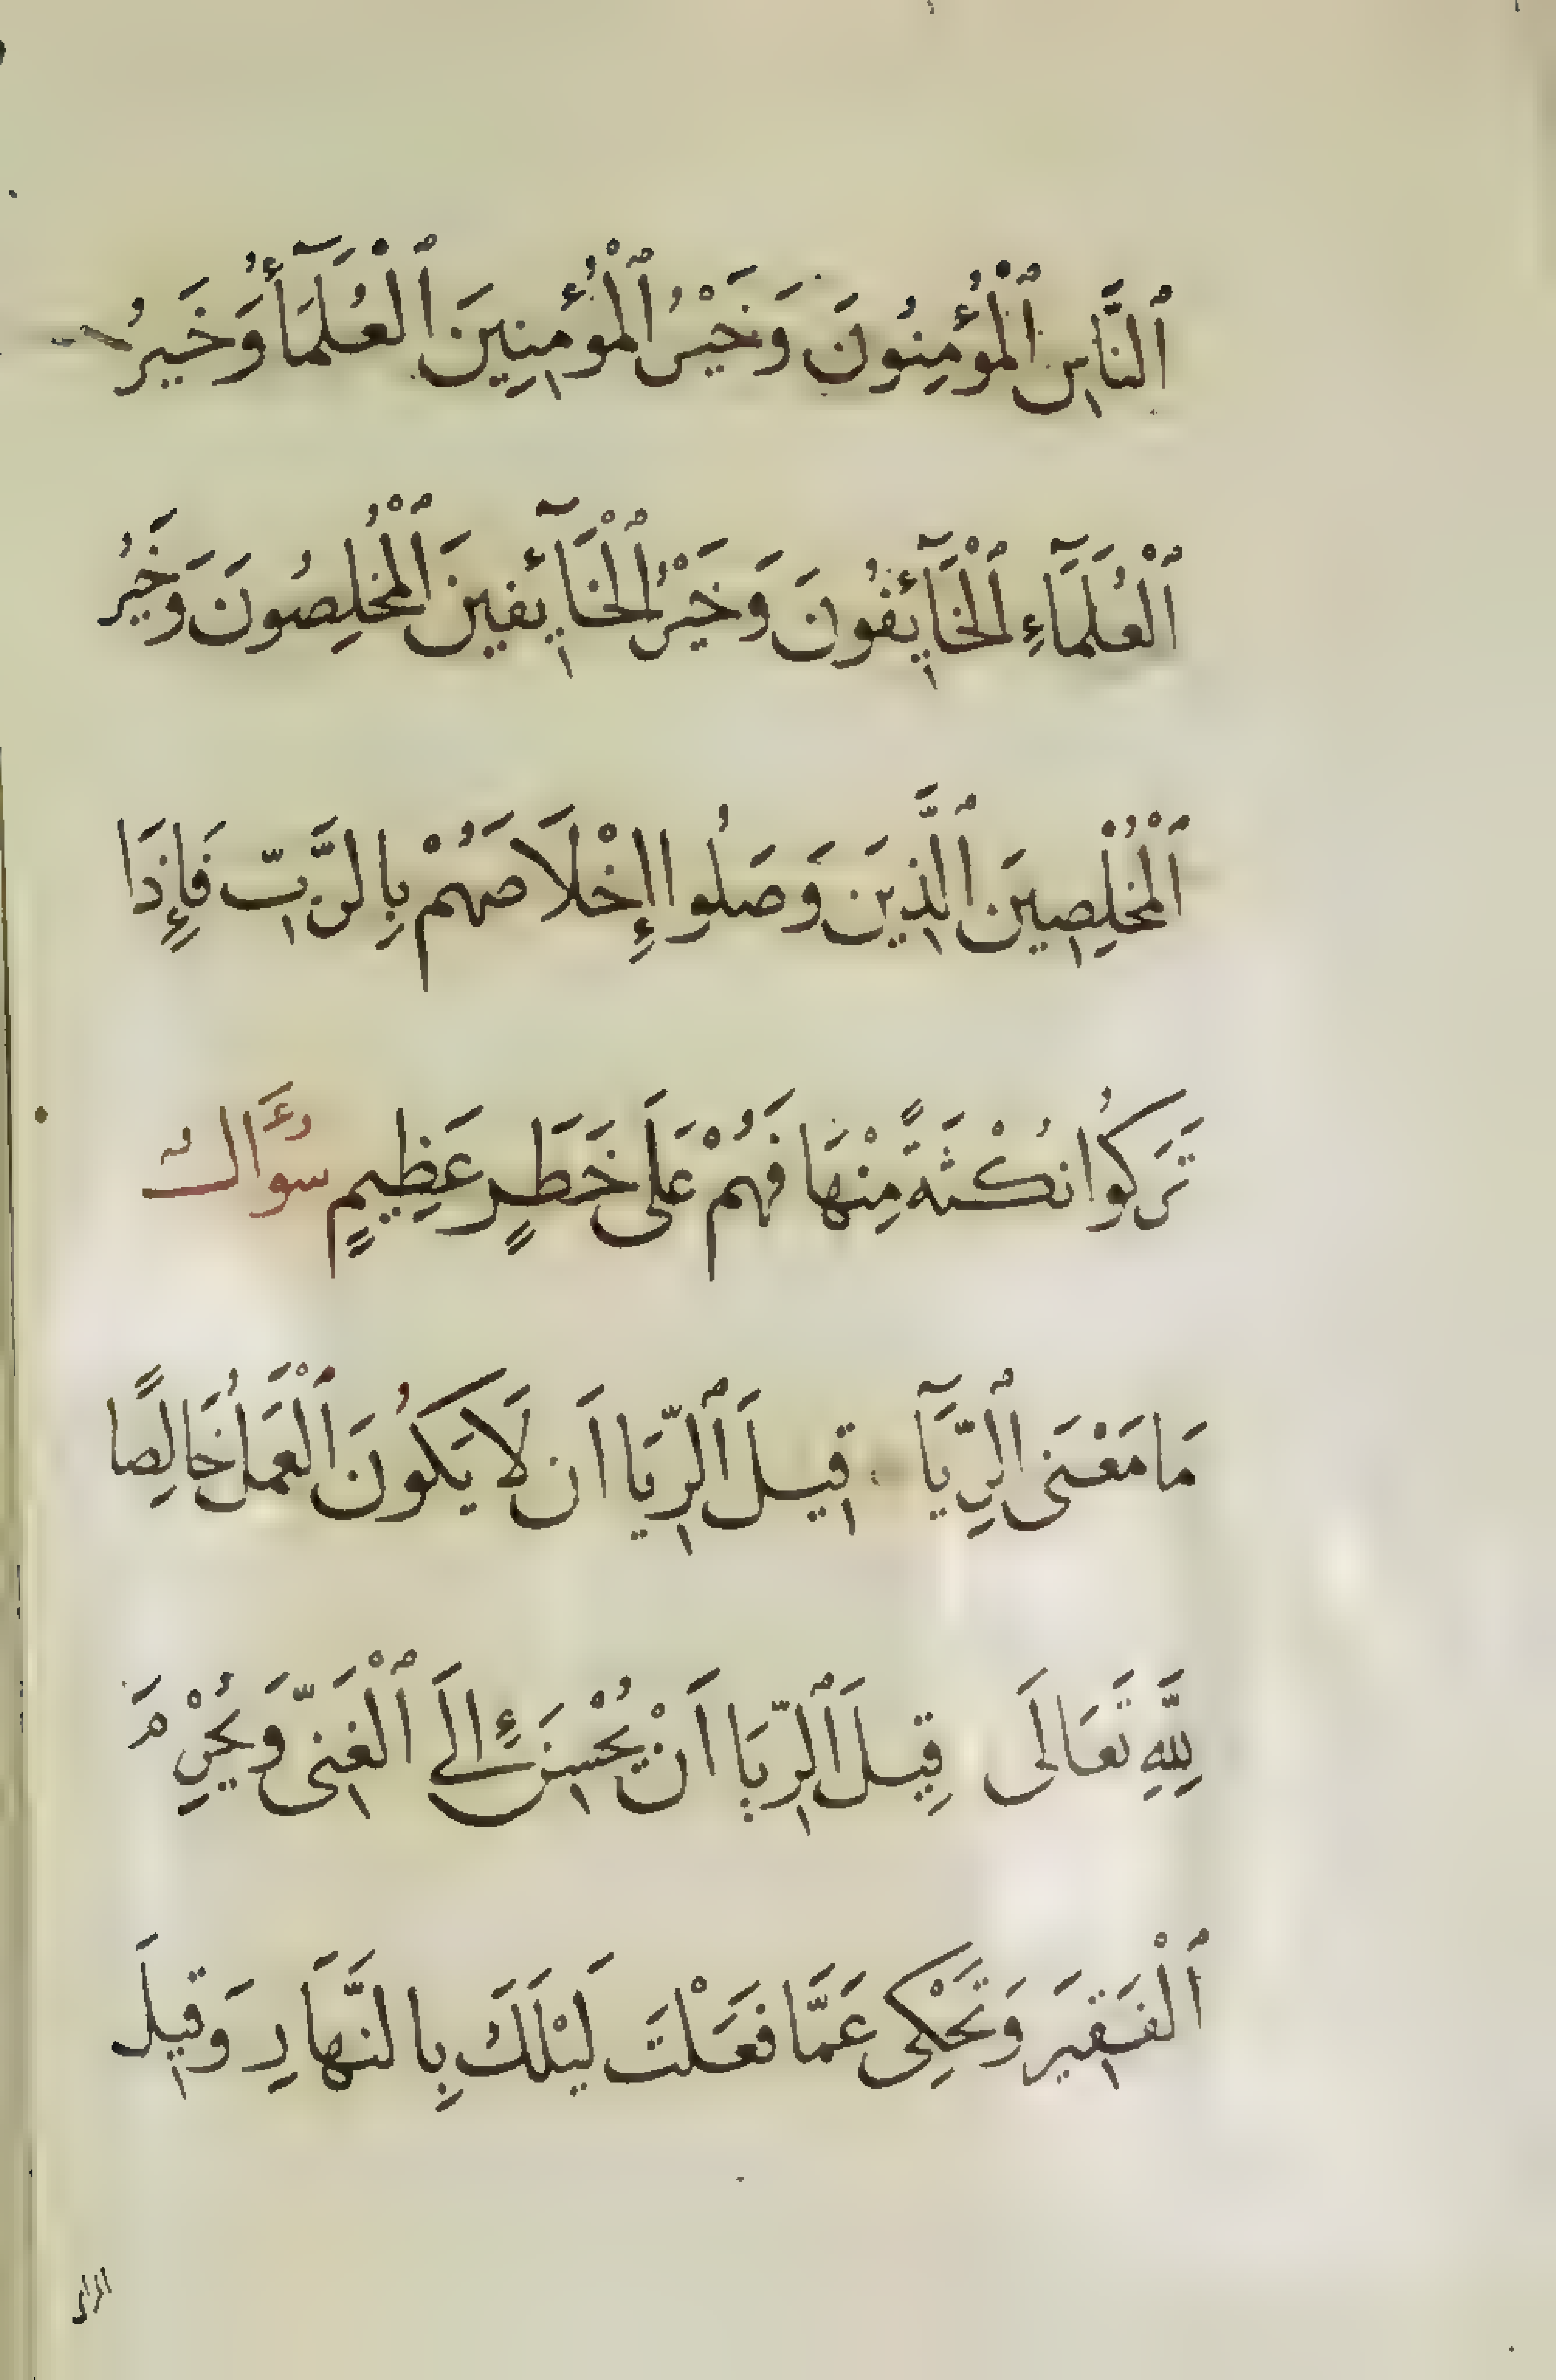 ٱلنَّاسِ ٱلْمُؤْمِنُونَ وَخَيْرُ ٱلْمُؤْمِنِينَ ٱلْعُلَمَآءُ وَخَيرُ
ٱلْعُلَمَآءِ ٱلْخَآئِفُونَ وَخَيْرُ ٱلْخَآئِفِينَ ٱلْمُخْلِصُونَ وَخَيْرُ
ٱلْمُخْلِصِينَ ٱلَّذِينَ وَصَلُوا إِخْلَاصَهُمْ بِالنَّيِّتِ فَإِذَا
تَرَكُوا نُكْثَةً مِنْهَا فَهُمْ عَلَى خَطَرٍ عَظِيمٍ سُؤَالٌ
مَا مَعْنَى ٱلرِّيَآ قِيلَ ٱلرِّيَا اَن لَا يَكُونَ ٱلْعَمَلُ خَالِصًا
لِلَّهِ تَعَالَى قِيلَ ٱلرِّيَا اَنْ يُحْسِنَ إِلَى ٱلْغَنِىِّ وَيُحْرِمَ
ٱلْفَقِيرَ وَتَحْكِى عَمَّا فَعَلْتَ لَيْلَكَ بِالنَّهَارِ وَقِيلَ
الرياى